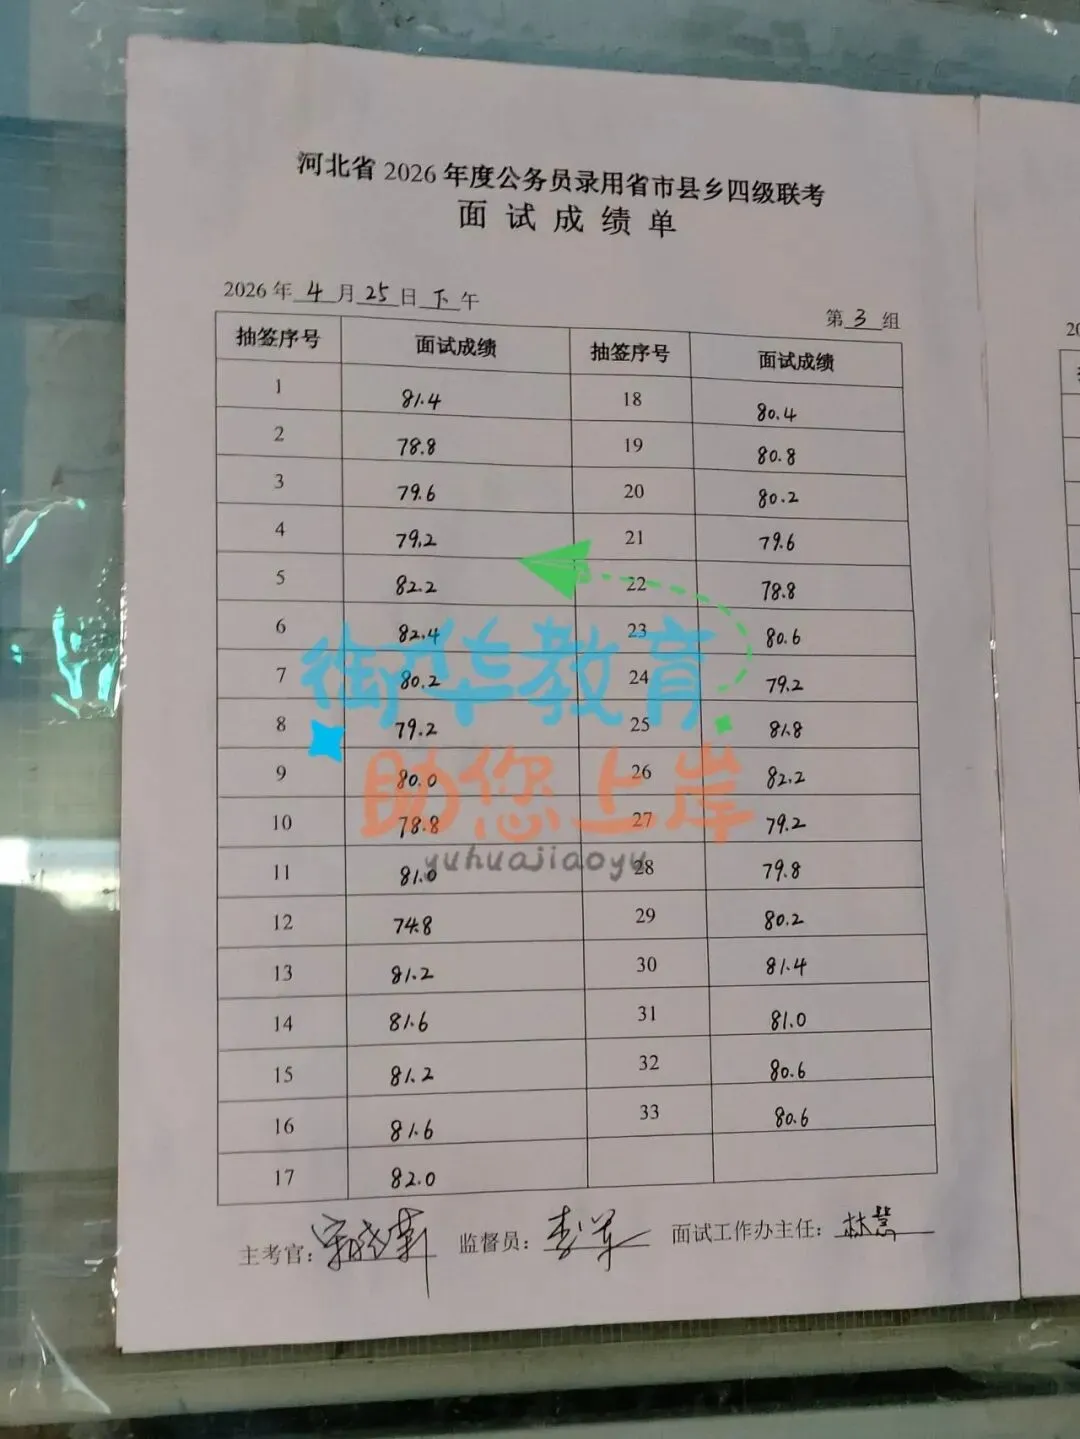 河北省 2026 年度公务员录用省市县乡四级联考
面试成绩单
2026 年 4 月 25 日 下 午
第 3 组
抽签序号 面试成绩 抽签序号 面试成绩
1 81.4 18 80.4
2 78.8 19 80.8
3 79.6 20 80.2
4 79.2 21 79.6
5 82.2 22 78.8
6 82.4 23 80.6
7 80.2 24 79.2
8 79.2 25 81.8
9 80.0 26 82.2
10 78.8 27 79.2
11 81.0 28 79.8
12 74.8 29 80.2
13 81.2 30 81.4
14 81.6 31 81.0
15 81.2 32 80.6
16 81.6 33 80.6
17 82.0
主考官： 监督员：李军 面试工作办主任：林慧
华教育
助您上岸
yuhuajiaoyu
20